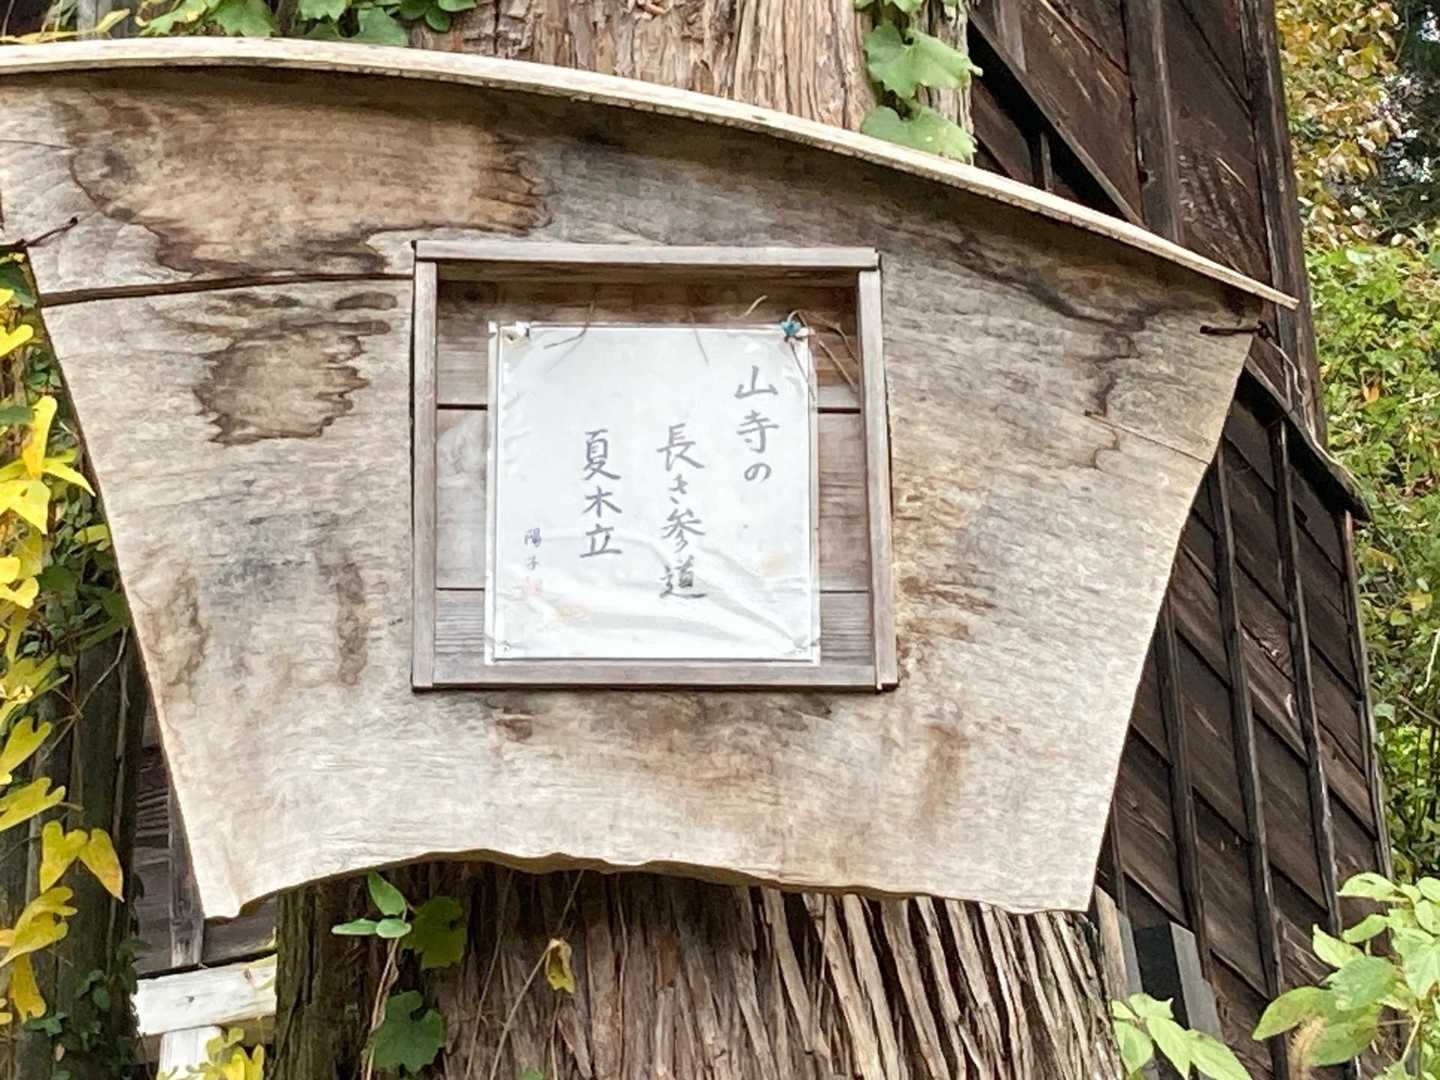 山寺の
長き参道
夏木立
陽子